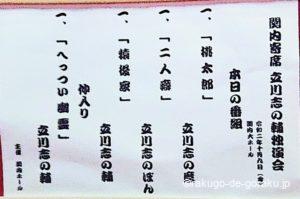 関内寄席 立川志の輔独演会
令和二年十月八日(木)
関内大ホール
本日の番組
一、「桃太郎」 立川志の麿
一、「二人癖」 立川志のぽん
一、「猿後家」 立川志の輔
仲入り
一、「へっつい幽霊」 立川志の輔
主催 関内ホール
@rakugo-de-goraku.jp